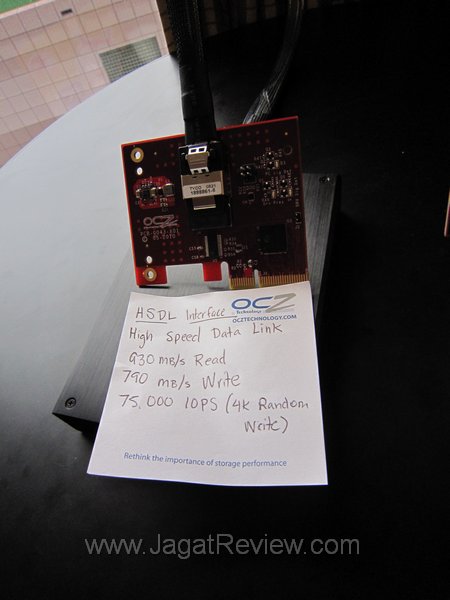 TYCO
OCZ
HSDL Interface
OCZ
Technology
OCZTECHNOLOGY.COM
High Speed Data Link
930 MB/s Read
790 MB/s Write
75,000 IOPS (4K Random
Write)
Rethink the importance of storage performance
www.JagatReview.com